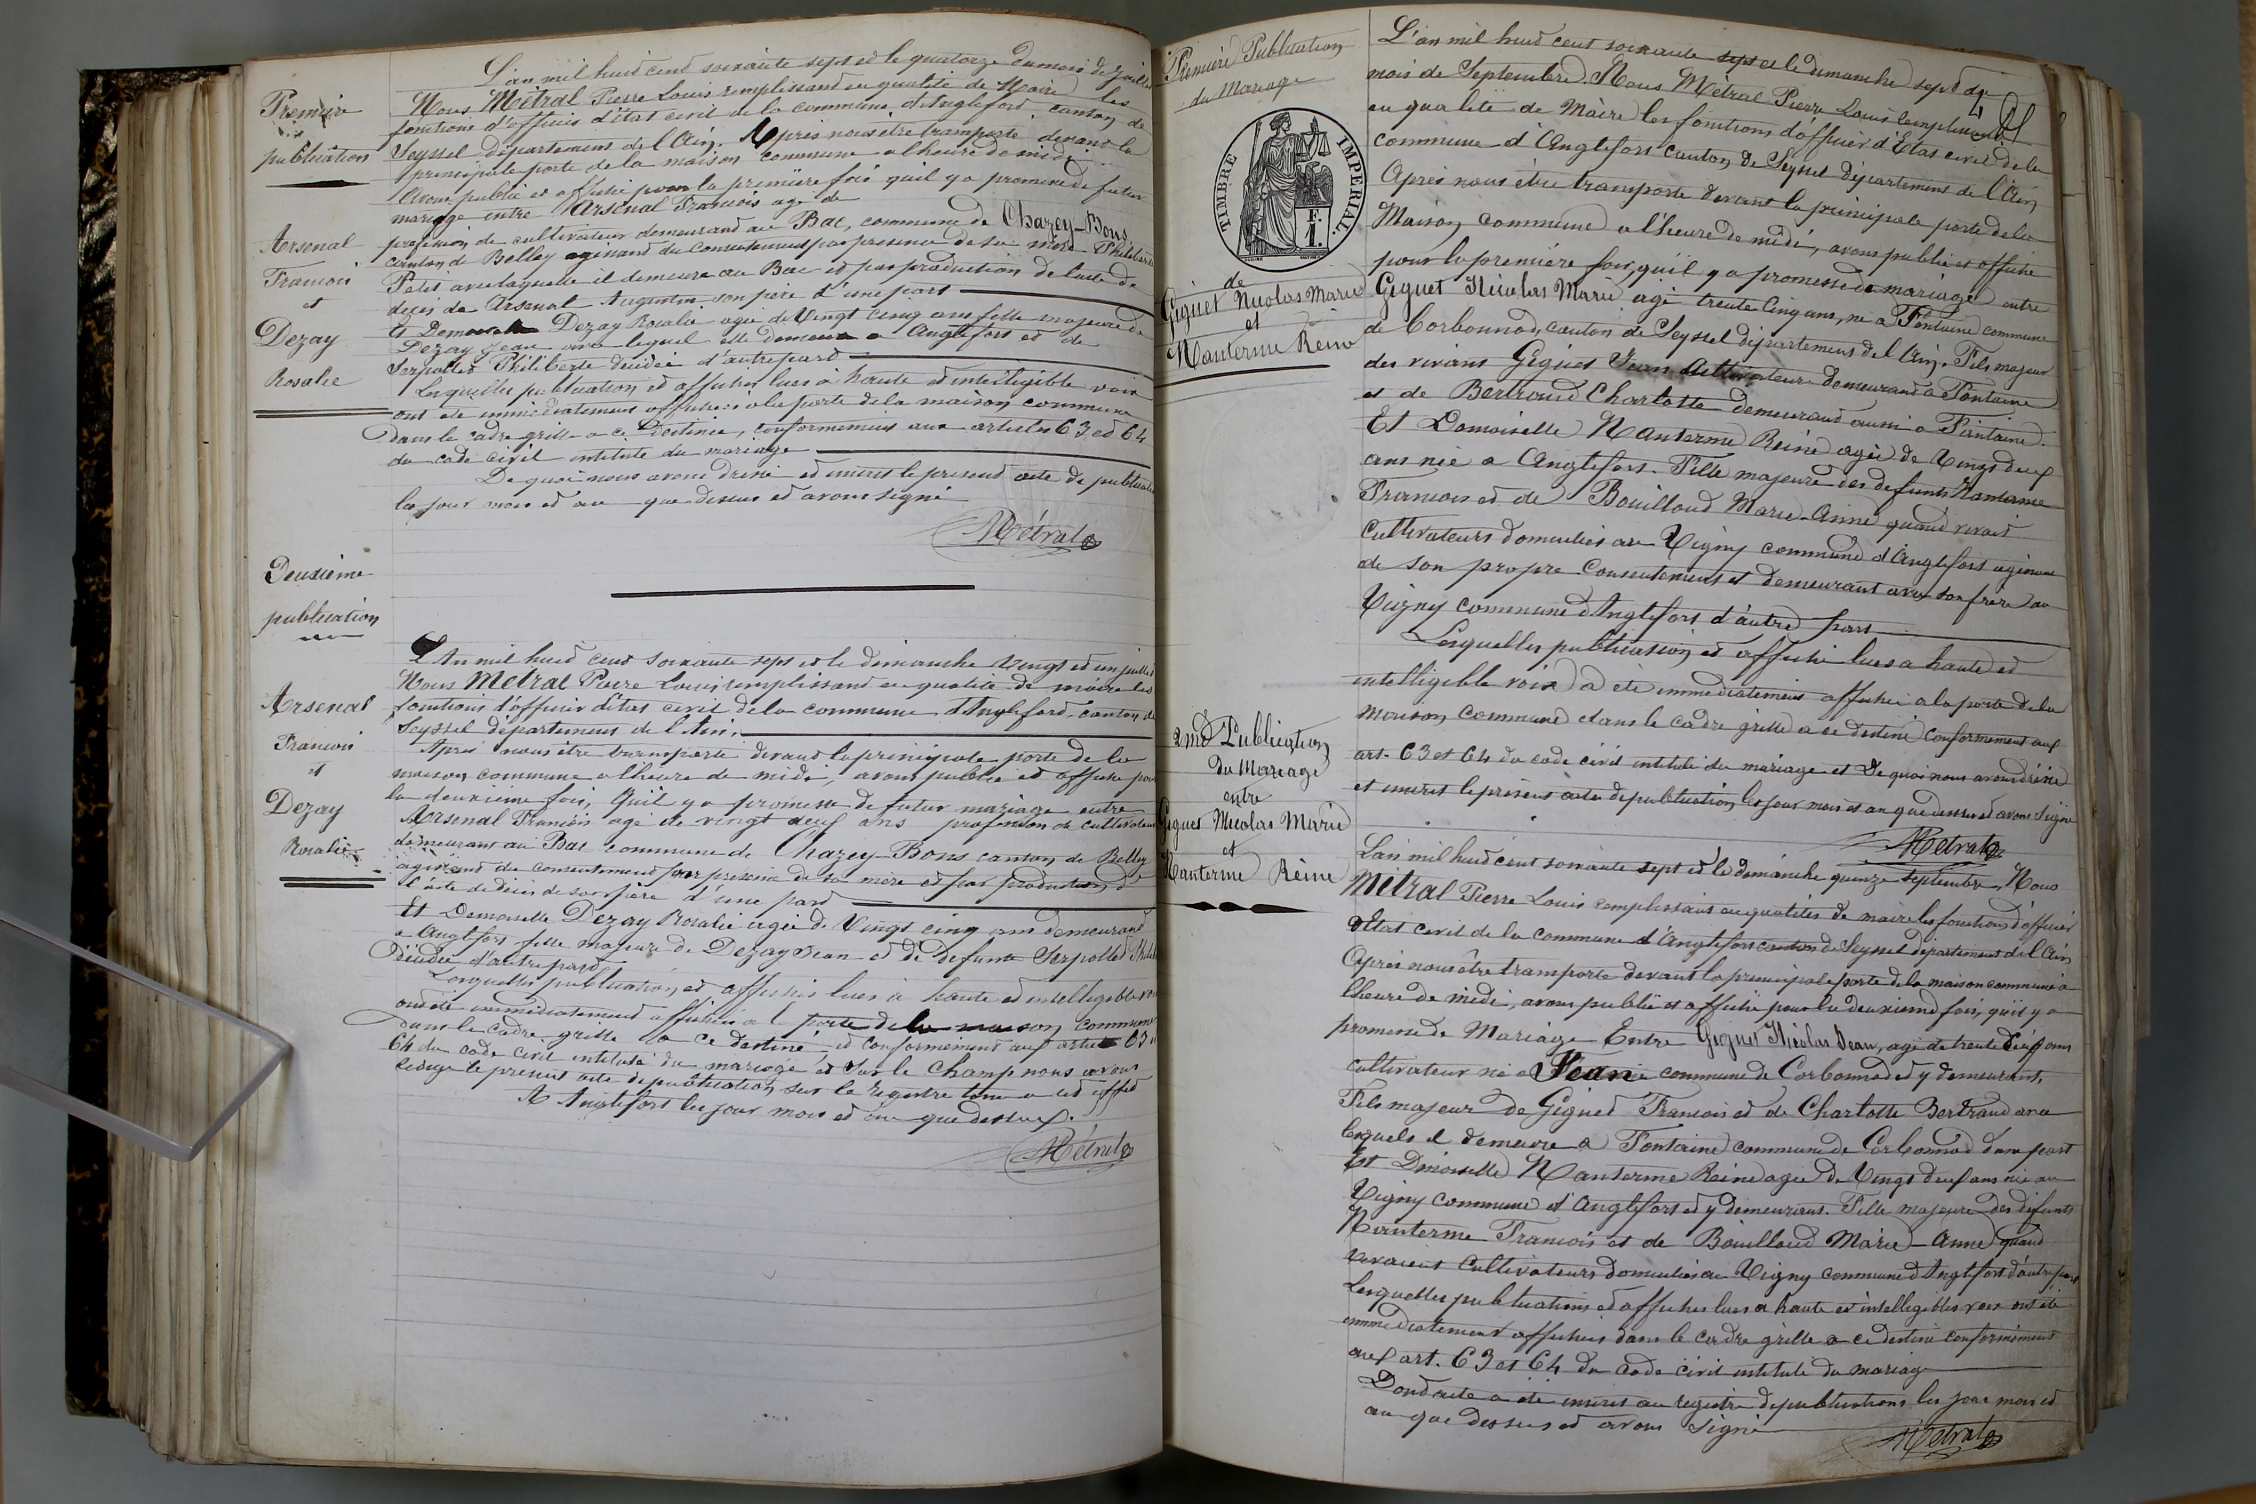 Première
publication
Arsenal
Francois
et
Dezay
Rosalie
L'an mil huid cend soixante sept ed le quatorze du mois de Juillet
Nous Métral Pierre Louis remplissand en qualité de Maire les
fonctions d'officier d'état civil de la commune d'Angleford canton de
Seyssel département de l'Ain. Après nous être transporté devant la
principale porte de la maison commune a lheure de midi
Avons publié et affiché pour la première fois quil y a promesse de futur
mariage entre Arsenal Francois agé de
profession de cultivateur demeurand au Bac, commune de Chazey-Bons
canton de Belley agissand du consentement par presence de sa mère Philiberte
Petit avec laquelle il demeure au Bac et par production de l'acte de
décès de Arsenal Augustin son père d'une part
Et Demoiselle Dezay Rosalie agée de Vingt cinq ans fille majeure de
Dezay Jean avec lequel elle demeure a Anglefort et de
Serpolled Philiberte décédée d'autre pard
Lesquelles publication et affiches lues à haute ed intelligible voix
ont été immédiatement affichées a la porte de la maison commune
dans le cadre grillé a ce destiné, conformément aux articles 63 ed 64
du code civil intitulé du mariage
De quoi nous avons dressé ed inscrit le présend acte de publication
les jour mois ed an que dessus ed avons signé
Métral
Deuxième
publication
Arsenal
Francois
et
Dezay
Rosalie
L'An mil huid cend soixante sept et le dimanche Vingt et un juillet
Nous Métral Pierre Louis remplissand en qualité de maire les
fonctions d'officier d'état civil de la commune d'Angleford, canton de
Seyssel département de l'Ain.
Après nous être transporté devand la principale porte de la
maison commune a lheure de midi, avons publié ed affiché pour
la deuxième fois, Qu'il y a promesse de futur mariage entre
Arsenal Francois agé de vingt neuf ans profession de cultivateur
demeurant au Bac commune de Chazey-Bons canton de Belley
agissand du consentement par presence de sa mère ed par production de
l'acte de décès de son père d'une pard
Et Demoiselle Dezay Rosalie agée de Vingt cinq ans demeurand
a Anglefort fille majeure de Dezay Jean et de défunte Serpolled
décédée d'autre pard
Lesquelles publication ed affiches lues à haute ed intelligible voix
ont été immédiatement affichées a la porte de la maison commune
dans le cadre grillé a ce destiné, et conformément aux articles 63 et
64 du code civil intitulé du mariage et sur le champ nous avons
rédigé le présent acte de publication sur le registre tenu a cet effet
A Anglefort les jour mois ed an que dessus.
Métral
Première Publication
du Mariage
TIMBRE IMPERIAL
F.
1.
de
Giguet Nicolas Marie
et
Nanterme Reine
L'an mil huid cent soixante sept et le dimanche sept du
mois de Septembre. Nous Métral Pierre Louis remplissand
en qualité de Maire les fonctions d'officier d'Etat civil de la
commune d'Anglefort canton de Seyssel département de l'Ain
Après nous être transporté devant la principale porte de la
Maison commune a l'heure de midi, avons publié et affiché
pour la première fois, qu'il y a promesse de mariage entre
Giguet Nicolas Marie agé trente cinq ans, né a Fontaine commune
de Corbonnod, canton de Seyssel département de l'Ain. Fils majeur
des vivans Giguet Jean cultivateur demeurand a Fontaine
et de Bertrand Charlotte demeurand aussi a Fontaine.
Et Demoiselle Nanterme Reine agée de Vingt deux
ans née a Anglefort. Fille majeure des defunts Nanterme
Francois et de Bouilloud Marie-Anne quand vivait
Cultivateurs domiciliés au Vigny commune d'Anglefort agissant
de son propre consentement et demeurant avec son frère au
Vigny commune d'Anglefort d'autre part
Lesquelles publication ed affiche lues a haute ed
intelligible voix a été immédiatement affichée a la porte de la
maison commune dans le cadre grillé a ce destiné conformément aux
art. 63 et 64 du code civil intitulé du mariage et De quoi nous avons dressé
et inscrit le présent acte de publication les jour mois et an que dessus et avons signé
Métral
2me Publication
du Mariage
entre
Giguet Nicolas Marie
et
Nanterme Reine
L'an mil huid cent soixante sept et le dimanche quinze septembre. Nous
Métral Pierre Louis remplissant en qualités de maire les fonctions d'officier
d'Etat civil de la commune d'Anglefort canton de Seyssel département de l'Ain
Après nous être transporté devant la principale porte de la maison commune à
lheure de midi, avons publié et affiché pour la deuxième fois, qu'il y a
promesse de Mariage Entre Giguet Nicolas Jean, agé de trente cinq ans
cultivateur né a commune de Corbonnod et y demeurant.
Fils majeur de Giguet Francois et de Charlotte Bertrand avec
lesquels il demeure a Fontaine commune de Corbonnod d'une part
Et Demoiselle Nanterme Reine agée de Vingt deux ans née au
Vigny commune d'Anglefort et y demeurant. Fille majeure des défunts
Nanterme Francois et de Bouilloud Marie-Anne quand
vivaient Cultivateurs domiciliés au Vigny commune d'Anglefort d'autre part
Lesquelles publications ed affiches lues a haute et intelligibles voix ont été
immédiatement affichées dans le cadre grillé a ce destiné conformément
aux art. 63 et 64 du code civil intitulé du mariage
Dond acte a été inscrit au registre de publications les jour mois ed
an que dessus ed avons signé
Métral